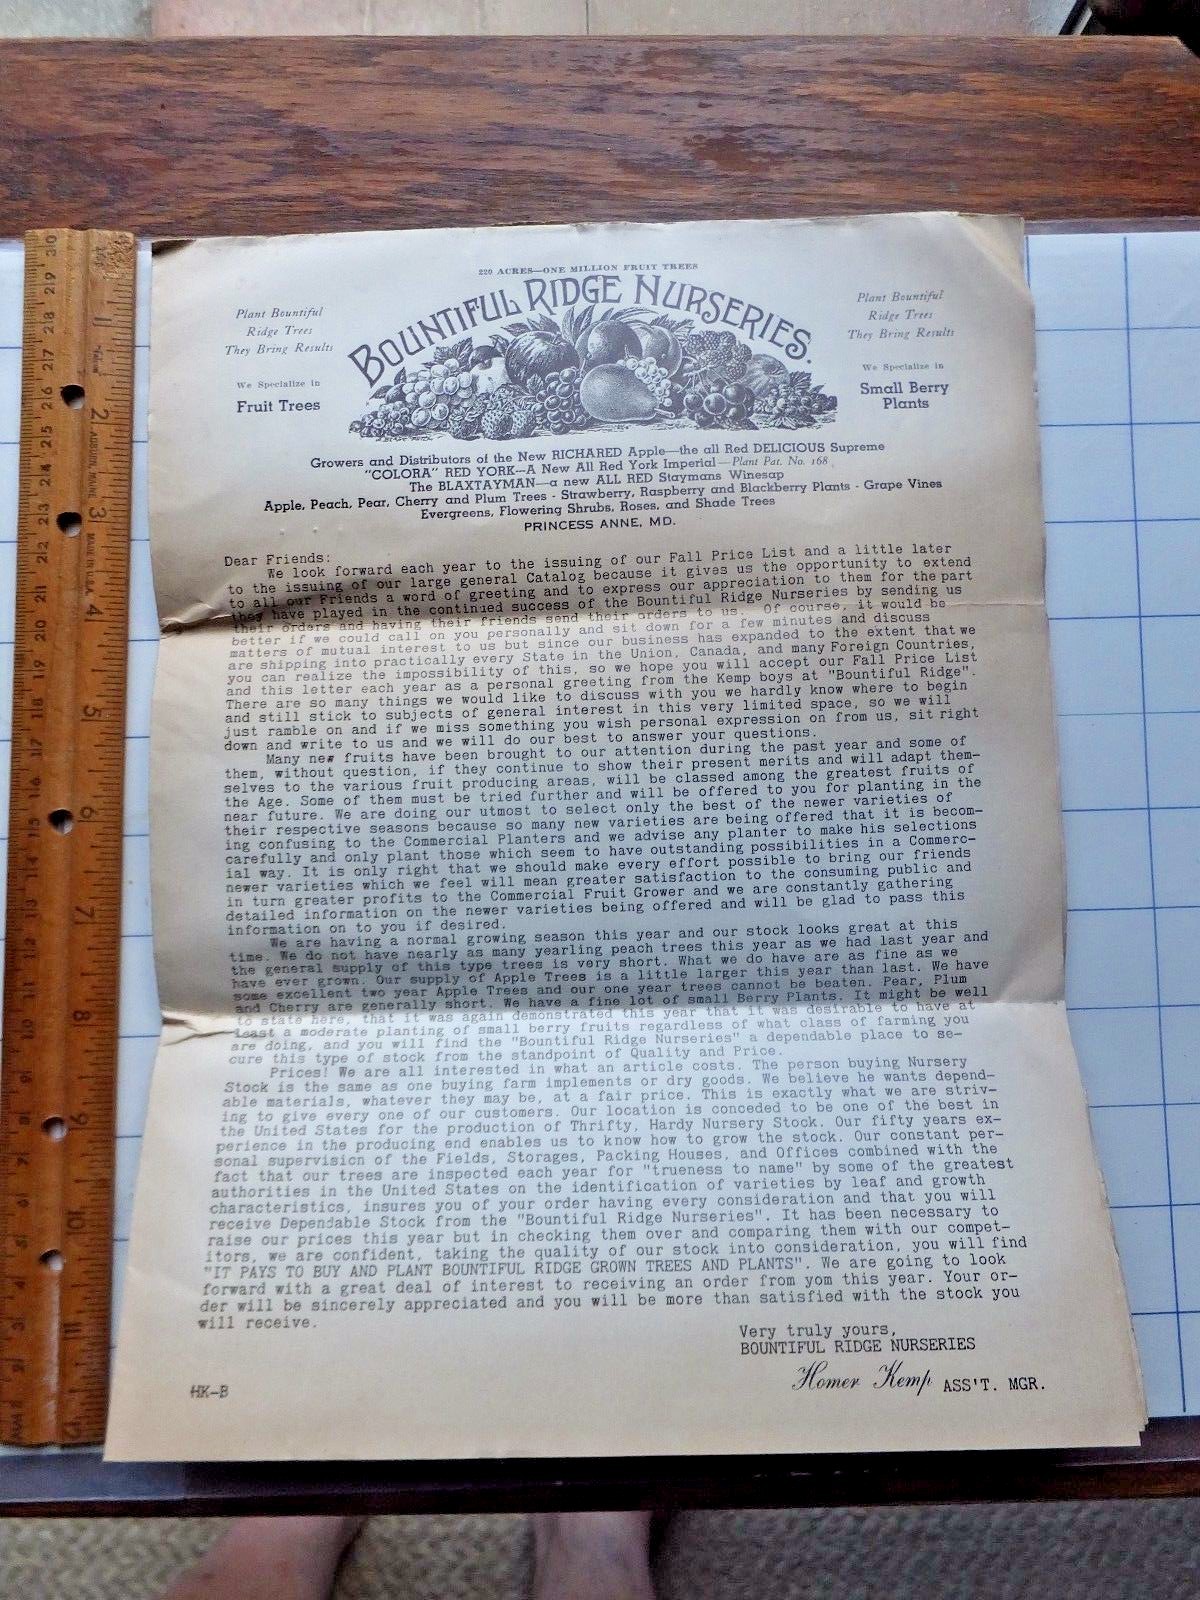 220 ACRES—ONE MILLION FRUIT TREES
BOUNTIFUL RIDGE NURSERIES.
Plant Bountiful
Ridge Trees
They Bring Results
We Specialize in
Fruit Trees
Plant Bountiful
Ridge Trees
They Bring Results
We Specialize in
Small Berry
Plants
Growers and Distributors of the New RICHARED Apple—the all Red DELICIOUS Supreme
"COLORA" RED YORK—A New All Red York Imperial—Plant Pat. No. 168
The BLAXTAYMAN—a new ALL RED Staymans Winesap
Apple, Peach, Pear, Cherry and Plum Trees - Strawberry, Raspberry and Blackberry Plants - Grape Vines
Evergreens, Flowering Shrubs, Roses, and Shade Trees
PRINCESS ANNE, MD.
Dear Friends:
We look forward each year to the issuing of our Fall Price List and a little later
to the issuing of our large general Catalog because it gives us the opportunity to extend
to all our Friends a word of greeting and to express our appreciation to them for the part
they have played in the continued success of the Bountiful Ridge Nurseries by sending us
their orders and having their friends send their orders to us. Of course, it would be
better if we could call on you personally and sit down for a few minutes and discuss
matters of mutual interest to us but since our business has expanded to the extent that we
are shipping into practically every State in the Union, Canada, and many Foreign Countries,
you can realize the impossibility of this, so we hope you will accept our Fall Price List
and this letter each year as a personal greeting from the Kemp boys at "Bountiful Ridge".
There are so many things we would like to discuss with you we hardly know where to begin
and still stick to subjects of general interest in this very limited space, so we will
just ramble on and if we miss something you wish personal expression on from us, sit right
down and write to us and we will do our best to answer your questions.
Many new fruits have been brought to our attention during the past year and some of
them, without question, if they continue to show their present merits and will adapt them-
selves to the various fruit producing areas, will be classed among the greatest fruits of
the Age. Some of them must be tried further and will be offered to you for planting in the
near future. We are doing our utmost to select only the best of the newer varieties of
their respective seasons because so many new varieties are being offered that it is becom-
ing confusing to the Commercial Planters and we advise any planter to make his selections
carefully and only plant those which seem to have outstanding possibilities in a Commerc-
ial way. It is only right that we should make every effort possible to bring our friends
newer varieties which we feel will mean greater satisfaction to the consuming public and
in turn greater profits to the Commercial Fruit Grower and we are constantly gathering
detailed information on the newer varieties being offered and will be glad to pass this
information on to you if desired.
We are having a normal growing season this year and our stock looks great at this
time. We do not have nearly as many yearling peach trees this year as we had last year and
the general supply of this type trees is very short. What we do have are as fine as we
have ever grown. Our supply of Apple Trees is a little larger this year than last. We have
some excellent two year Apple Trees and our one year trees cannot be beaten. Pear, Plum
and Cherry are generally short. We have a fine lot of small Berry Plants. It might be well
to state here, that it was again demonstrated this year that it was desirable to have at
least a moderate planting of small berry fruits regardless of what class of farming you
are doing, and you will find the "Bountiful Ridge Nurseries" a dependable place to se-
cure this type of stock from the standpoint of Quality and Price.
Prices! We are all interested in what an article costs. The person buying Nursery
Stock is the same as one buying farm implements or dry goods. We believe he wants depend-
able materials, whatever they may be, at a fair price. This is exactly what we are striv-
ing to give every one of our customers. Our location is conceded to be one of the best in
the United States for the production of Thrifty, Hardy Nursery Stock. Our fifty years ex-
perience in the producing end enables us to know how to grow the stock. Our constant per-
sonal supervision of the Fields, Storages, Packing Houses, and Offices combined with the
fact that our trees are inspected each year for "trueness to name" by some of the greatest
authorities in the United States on the identification of varieties by leaf and growth
characteristics, insures you of your order having every consideration and that you will
receive Dependable Stock from the "Bountiful Ridge Nurseries". It has been necessary to
raise our prices this year but in checking them over and comparing them with our compet-
itors, we are confident, taking the quality of our stock into consideration, you will find
"IT PAYS TO BUY AND PLANT BOUNTIFUL RIDGE GROWN TREES AND PLANTS". We are going to look
forward with a great deal of interest to receiving an order from yom this year. Your or-
der will be sincerely appreciated and you will be more than satisfied with the stock you
will receive.
Very truly yours,
BOUNTIFUL RIDGE NURSERIES
Homer Kemp ASS'T. MGR.
HK-B